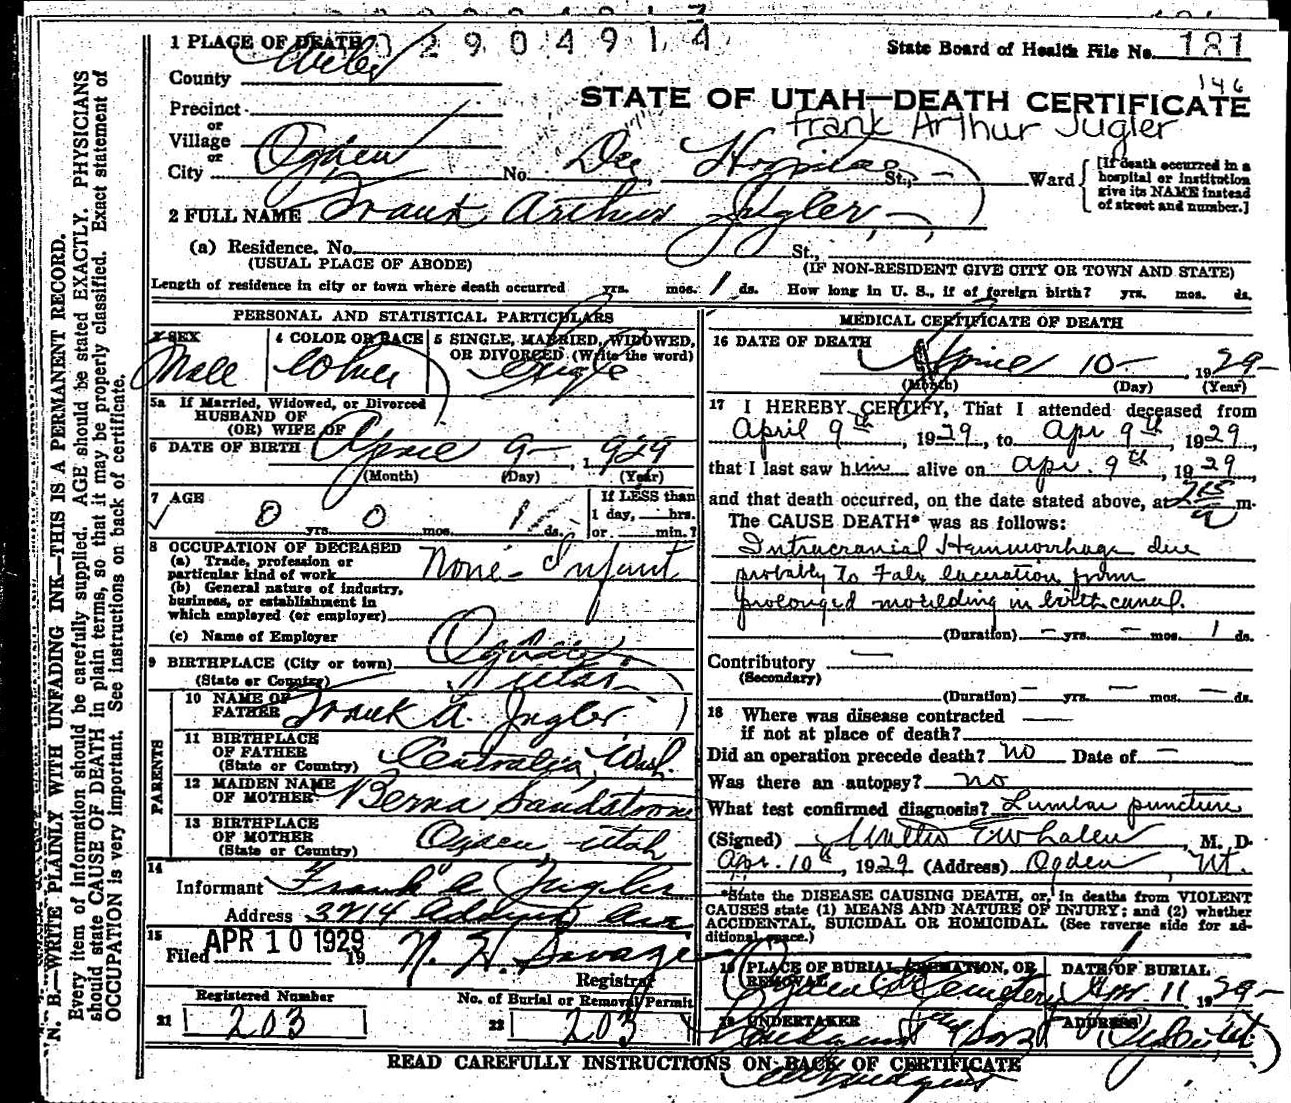 2904914
1 PLACE OF DEATH
State Board of Health File No. 181
County Weber
146
STATE OF UTAH—DEATH CERTIFICATE
Precinct
Frank Arthur Jugler
or
Village
or
City Ogden No. Dee Hospital St., Ward
[If death occurred in a
hospital or institution
give its NAME instead
of street and number.]
2 FULL NAME Frank Arthur Jugler,
(a) Residence. No. St.,
(USUAL PLACE OF ABODE) (IF NON-RESIDENT GIVE CITY OR TOWN AND STATE)
Length of residence in city or town where death occurred yrs. mos. 1 ds. How long in U. S., if of foreign birth? yrs. mos. ds.
PERSONAL AND STATISTICAL PARTICULARS
3 SEX
Male
4 COLOR OR RACE
White
5 SINGLE, MARRIED, WIDOWED,
OR DIVORCED (Write the word)
Single
5a If Married, Widowed, or Divorced
HUSBAND OF
(OR) WIFE OF
6 DATE OF BIRTH April 9- 1929
(Month) (Day) (Year)
7 AGE
0 yrs. 0 mos. 1 ds.
If LESS than
1 day, hrs.
or min.?
8 OCCUPATION OF DECEASED
(a) Trade, profession or
particular kind of work None - Infant
(b) General nature of industry,
business, or establishment in
which employed (or employer)
(c) Name of Employer
9 BIRTHPLACE (City or town) Ogden
(State or Country) Utah
PARENTS
10 NAME OF
FATHER Frank A. Jugler
11 BIRTHPLACE
OF FATHER
(State or Country) Centralia, Wash.
12 MAIDEN NAME
OF MOTHER Berna Sandstrom
13 BIRTHPLACE
OF MOTHER
(State or Country) Ogden, Utah
14
Informant Frank A Jugler
Address 3214 Adams Ave
15
Filed APR 10 1929 19 N. H. Savage
Registrar
Registered Number
21 203
No. of Burial or Removal Permit
22 203
MEDICAL CERTIFICATE OF DEATH
16 DATE OF DEATH
April 10- 1929-
(Month) (Day) (Year)
17 I HEREBY CERTIFY, That I attended deceased from
April 9th, 1929, to Apr 9th, 1929
that I last saw him alive on Apr. 9th, 1929,
and that death occurred, on the date stated above, at m.
The CAUSE DEATH* was as follows:
Intracranial Hemmorrhage due
probably to Falx laceration from
prolonged moulding in birth canal.
(Duration) - yrs. - mos. 1 ds.
Contributory
(Secondary)
(Duration) - yrs. - mos. - ds.
18 Where was disease contracted
if not at place of death?
Did an operation precede death? no Date of -
Was there an autopsy? no
What test confirmed diagnosis? Lumbar puncture
(Signed) Walter E Whalen, M. D.
Apr. 10th, 1929 (Address) Ogden, Ut.
*State the DISEASE CAUSING DEATH, or, in deaths from VIOLENT
CAUSES state (1) MEANS AND NATURE OF INJURY; and (2) whether
ACCIDENTAL, SUICIDAL OR HOMICIDAL. (See reverse side for ad-
ditional space.)
19 PLACE OF BURIAL, CREMATION, OR
REMOVAL
Ogden Cemetery
DATE OF BURIAL
Apr 11 1929-
20 UNDERTAKER
ADDRESS
Ogden, Ut.
READ CAREFULLY INSTRUCTIONS ON BACK OF CERTIFICATE
N. B.—WRITE PLAINLY WITH UNFADING INK—THIS IS A PERMANENT RECORD.
Every item of information should be carefully supplied. AGE should be stated EXACTLY. PHYSICIANS
should state CAUSE OF DEATH in plain terms, so that it may be properly classified. Exact statement of
OCCUPATION is very important. See instructions on back of certificate.